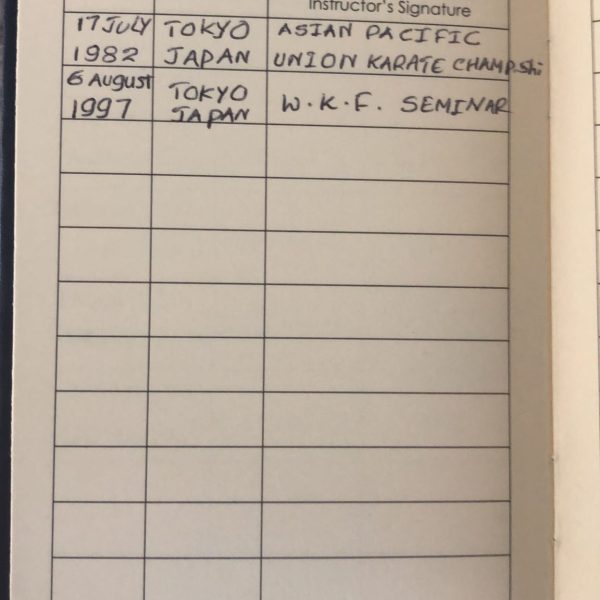 Instructor's Signature
17 JULY TOKYO ASIAN PACIFIC
1982 JAPAN UNION KARATE CHAMP.Shi
6 August TOKYO W.K.F. SEMINAR
1997 JAPAN